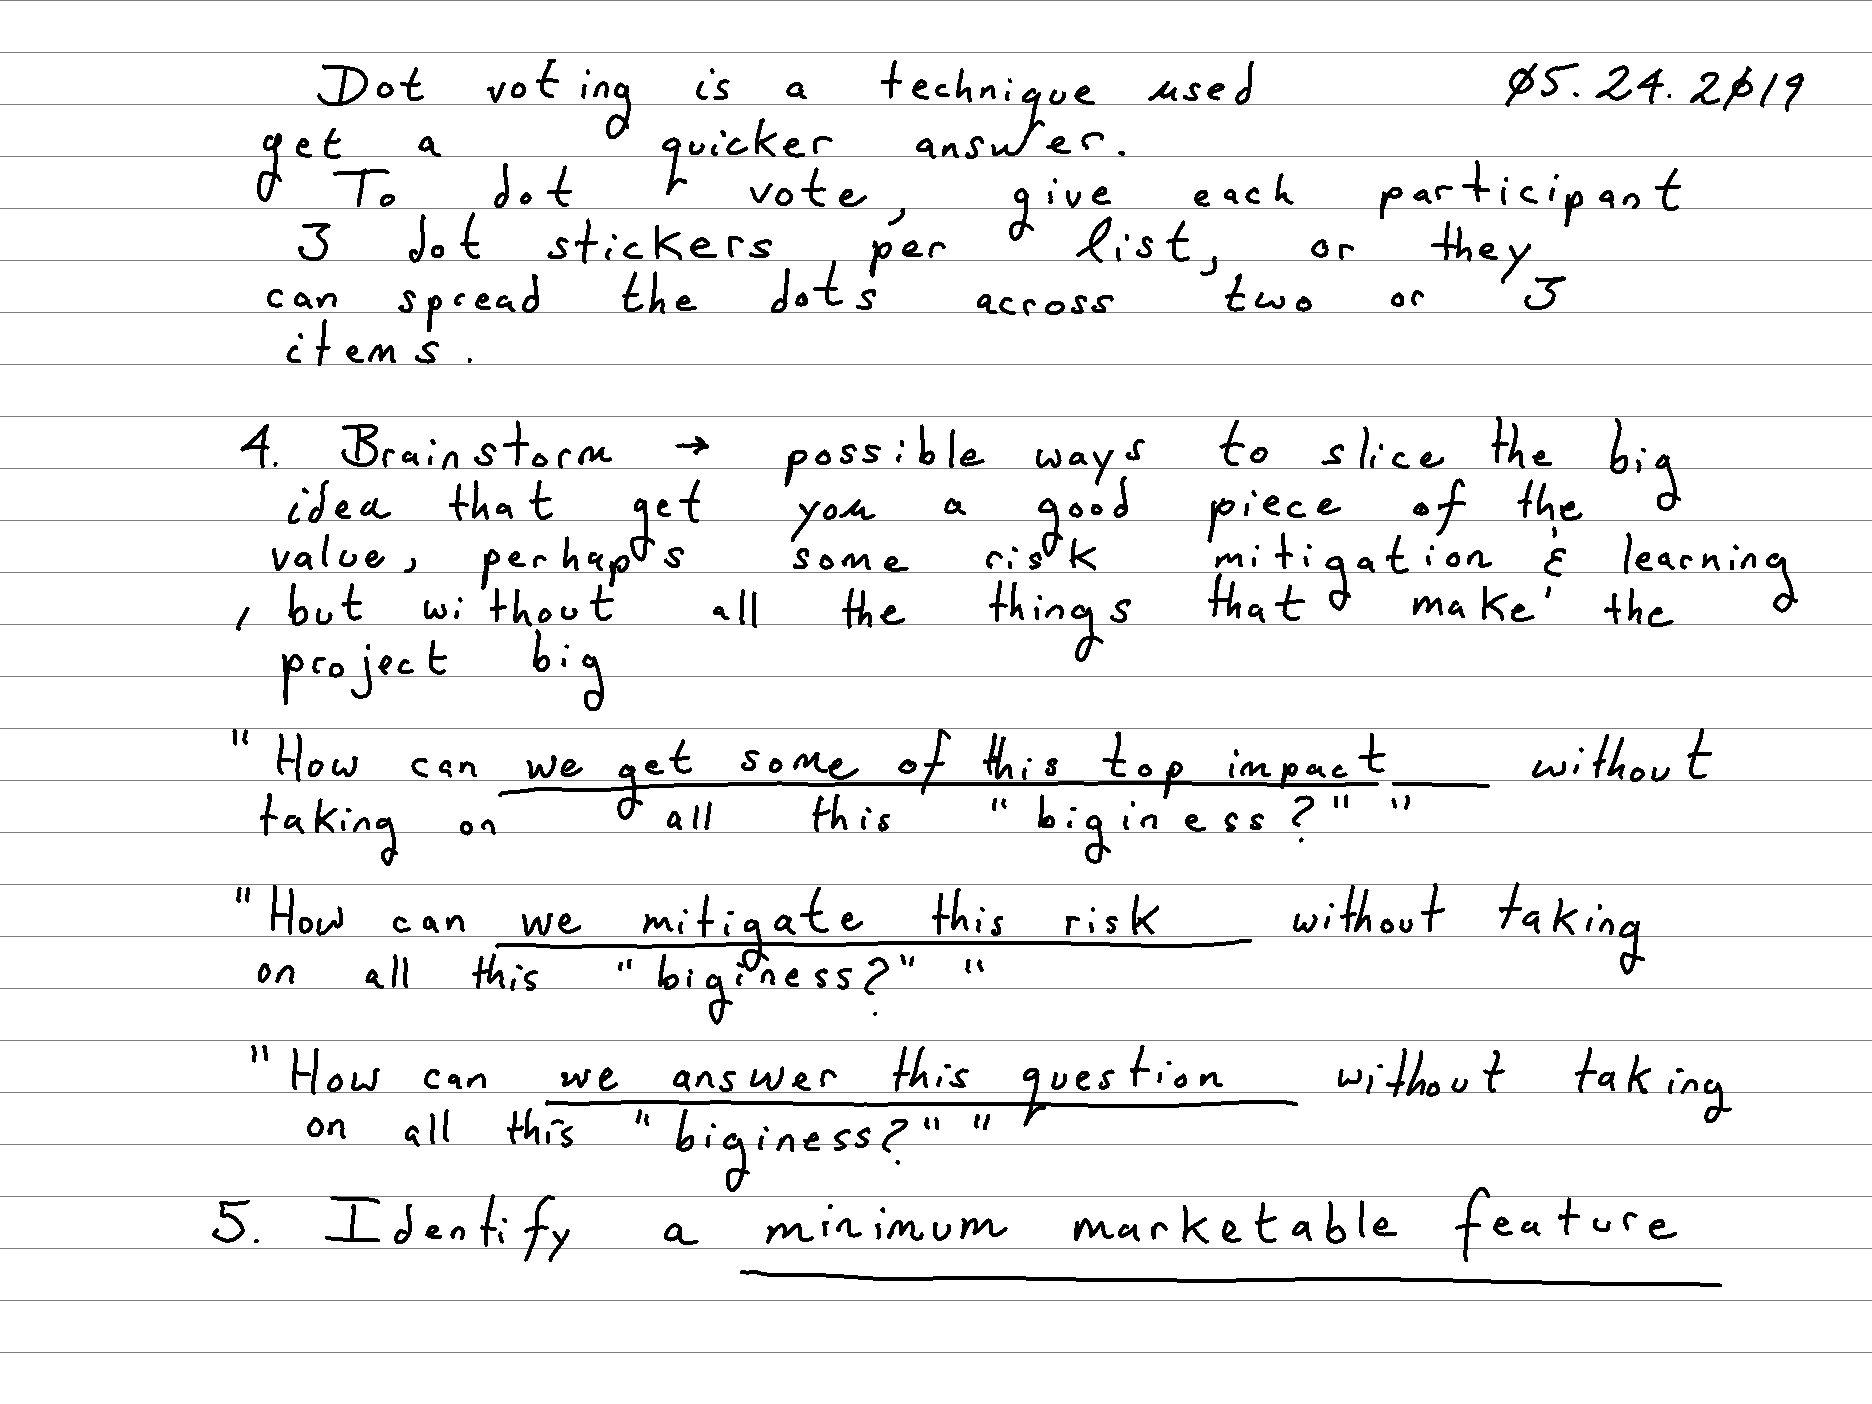 Dot voting is a technique used 05.24.2019
get a quicker answer.
To dot vote, give each participant
3 dot stickers per list, or they
can spread the dots across two or 3
items.
4. Brainstorm → possible ways to slice the big
idea that get you a good piece of the
value, perhaps some risk mitigation & learning
, but without all the things that make the
project big
"How can we get some of this top impact without
taking on all this "biginess?" "
"How can we mitigate this risk without taking
on all this "biginess?" "
"How can we answer this question without taking
on all this "biginess?" "
5. Identify a minimum marketable feature